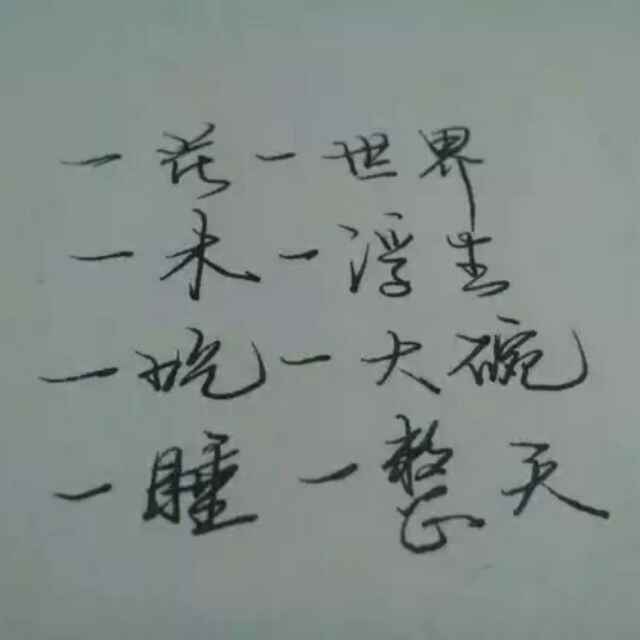 一花一世界
一木一浮生
一吃一大碗
一睡一整天